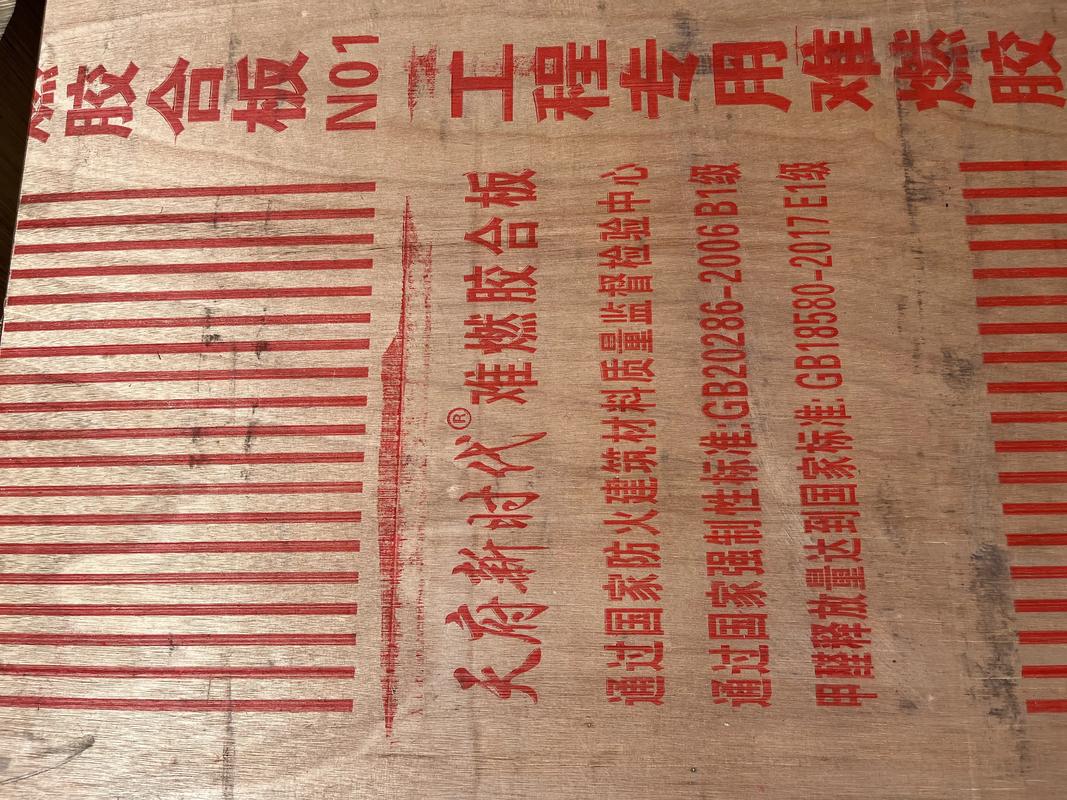 胶合板 NO1 工程专用难燃胶
天府新时代® 难燃胶合板
通过国家防火建筑材料质量监督检验中心
通过国家强制性标准:GB20286-2006B1级
甲醛释放量达到国家标准:GB18580-2017 E1级